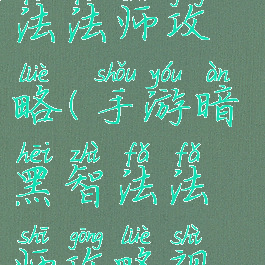 法法师攻
lüè shǒu yóu àn
略(手游暗
hēi zhì fǎ fǎ
黑智法法
shī gōng lüè shì
师攻略视